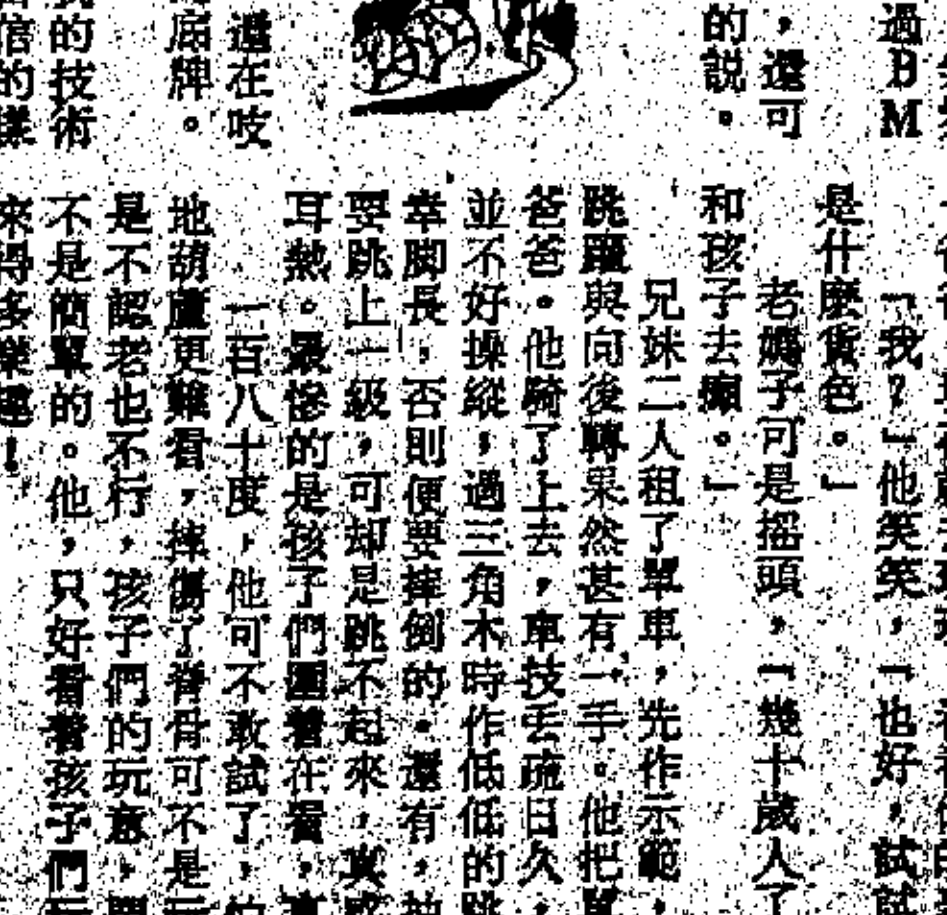 過BM
，還可
的説。
還在吱
底牌。
的技術
信的樣
「我？」他笑笑，「也好，試試
是什麼貨色。」
老媽子可是摇頭，「幾十歲人了
和孩子去癲。」
兄妹二人租了單車，先作示範，
跳躍與向後轉果然甚有一手。他把單
爸爸。他騎了上去，車技丢疏日久，
並不好操縱，過三角木時作低低的跳
幸脚長，否則便要摔倒的。還有，抽
要跳上一級，可却是跳不起來，真
耳熱。最慘的是孩子們圍着在看，
一百八十度，他可不敢試了，怕
地葫蘆更難看，摔傷了脊骨可不是玩
是不認老也不行，孩子們的玩意，
不是簡單的。他，只好看着孩子們玩
來得多樂趣！